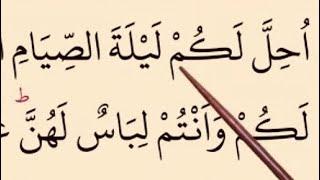 اُحِلَّ لَكُمْ لَيْلَةَ الصِّيَامِ
ط
لَكُمْ وَاَنْتُمْ لِبَاسٌ لَهُنَّ